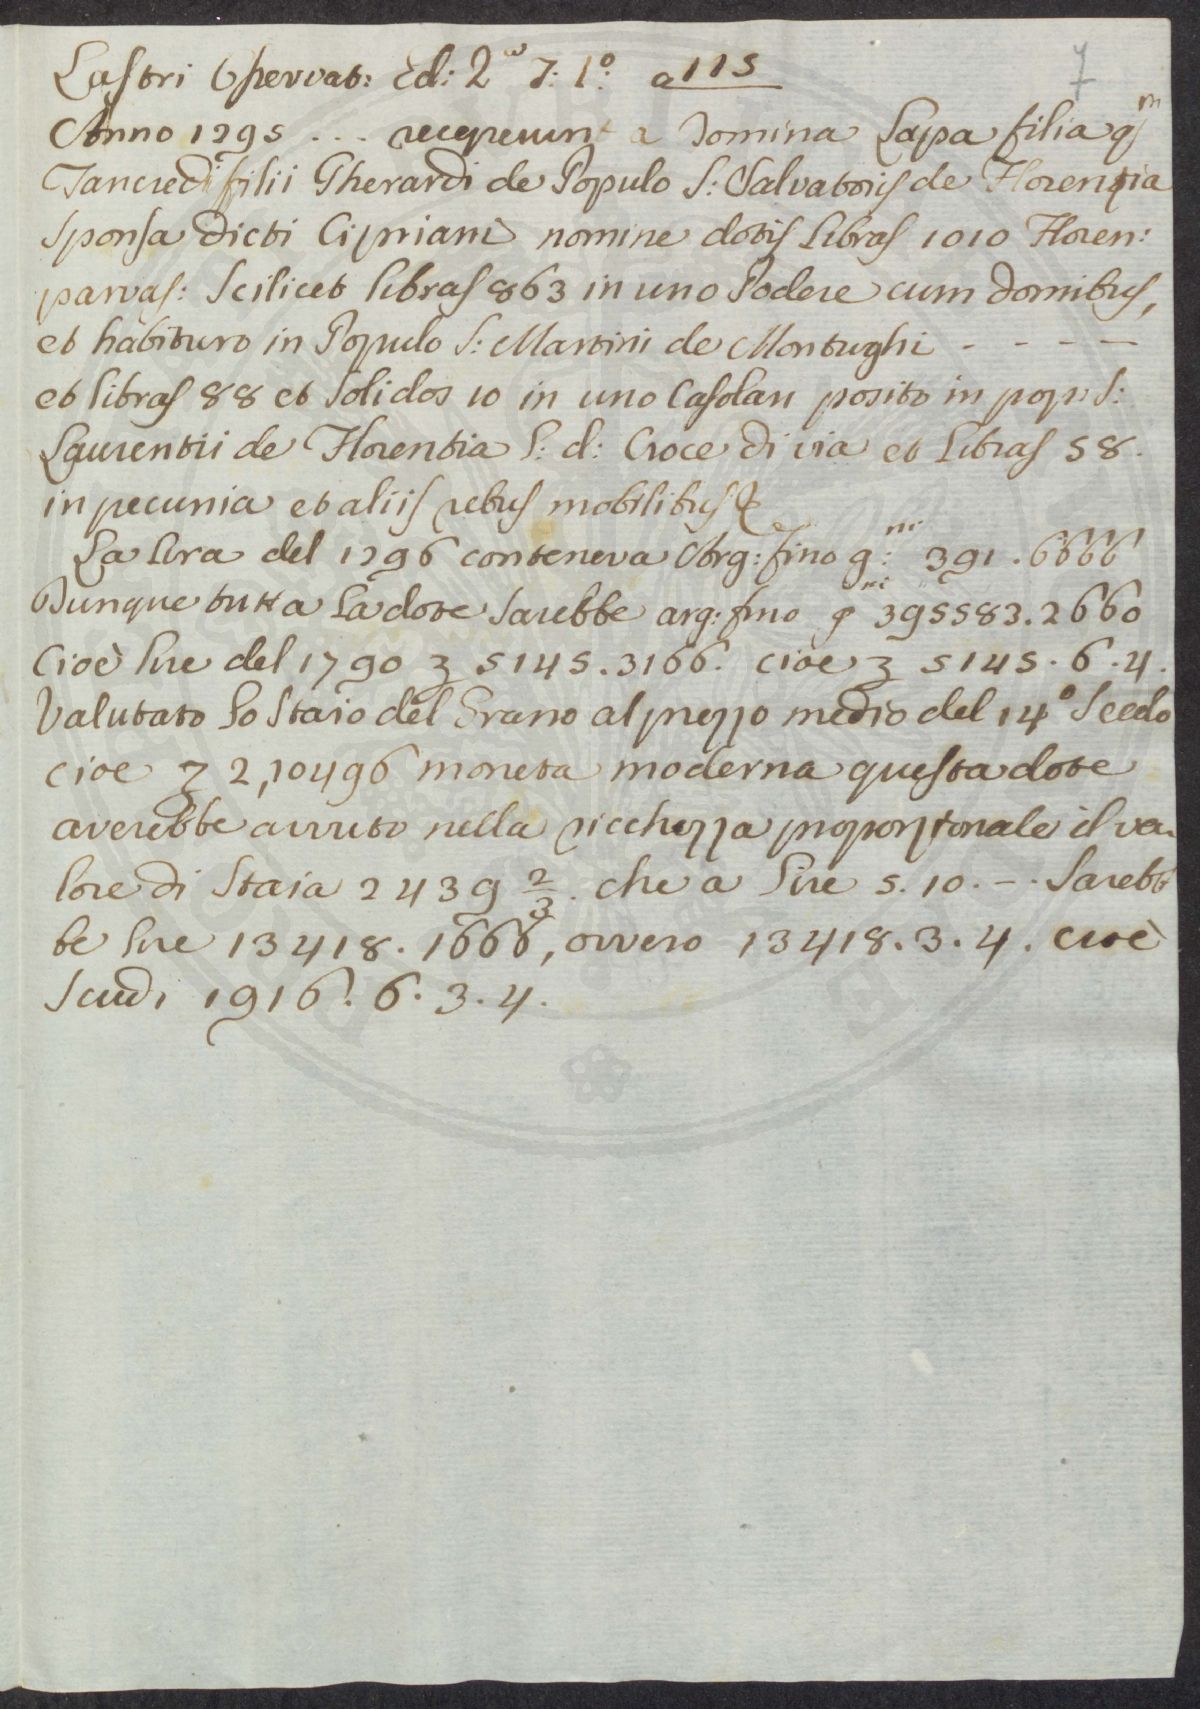 Lastri Osservat: Ed: 2ª T: 1º. a 115
7
Anno 1295 ... receperunt a Domina Lapa filia qm
Tancredi filii Gherardi de Populo S: Salvatoris de Florentia
Sponsa dicti Cipriani nomine dotis Libras 1010 Floren:
parvas: Scilicet libras 863 in uno Podere cum domibus,
et habituro in Populo S: Martini de Montughi - - - -
et libras 88 et Solidos 10 in uno Casolari posito in pop: S:
Laurentii de Florentia l: d: Croce di via et Libras 58.
in pecunia et aliis rebus mobilibus &
La lira del 1296 conteneva Arg: fino g:ni 391.6666
Dunque tutta La dote Sarebbe arg: fino gni 395583.2660
Cioè lire del 1790 ʒ 5145.3166. cioè ʒ 5145.6.4.
Valutato Lo Staio del Grano al prezzo medio del 14º Secolo
cioè ʒ 2,10496 moneta moderna questa dote
averebbe avuto nella ricchezza proporzionale il va
lore di Staia 2439 2/3. che a lire 5.10.-. Sareb
be lire 13418.1666, ovvero 13418.3.4. cioè
Scudi 1916.6.3.4.